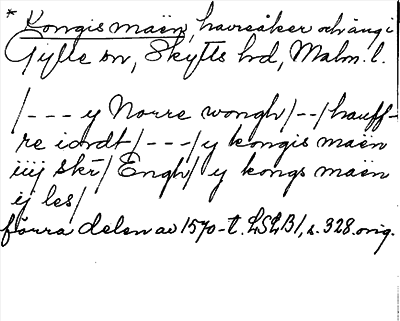 * Kongis maën, havreåker och äng i
Gylle sn, Skytts hd, Malm. l.
/ - - - y Norre wongh / - - / hauff-
re iordt / - - - / y kongis maën
iiij skr̄ / Engh / y kongs maën
ij les /
förra delen av 1570-t. LSLB1, s. 328. orig.